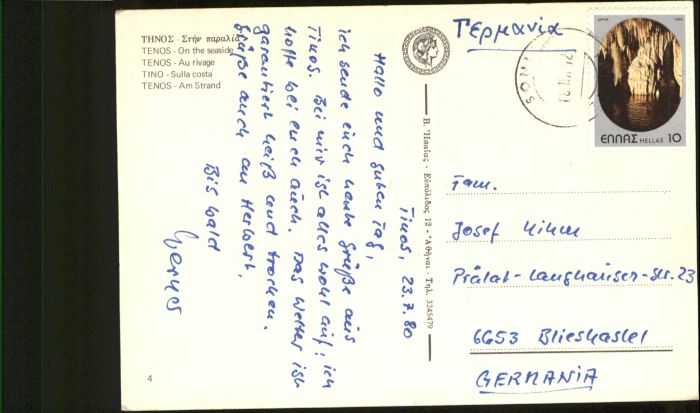 ΤΗΝΟΣ - Στήν παραλία
TENOS - On the seaside
TENOS - Au rivage
TINO - Sulla costa
TENOS - Am Strand
Tinos, 23.7.80
Hallo und guten Tag,
ich sende euch heute Grüße aus
Tinos. Bei mir ist alles wohl auf; ich
hoffe bei euch auch. Das Wetter ist
garantiert heiß und trocken.
Grüße auch an Herbert.
Bis bald
4
Β. Ἡσαΐας - Εὐπόλιδος 12 - Ἀθῆναι - Τηλ. 3245479
Γερμανία
ΕΛΛΑΣ HELLAS 10
Fam.
Josef
Prälat-Langhauser-Str. 23
6653 Blieskastel
GERMANIA